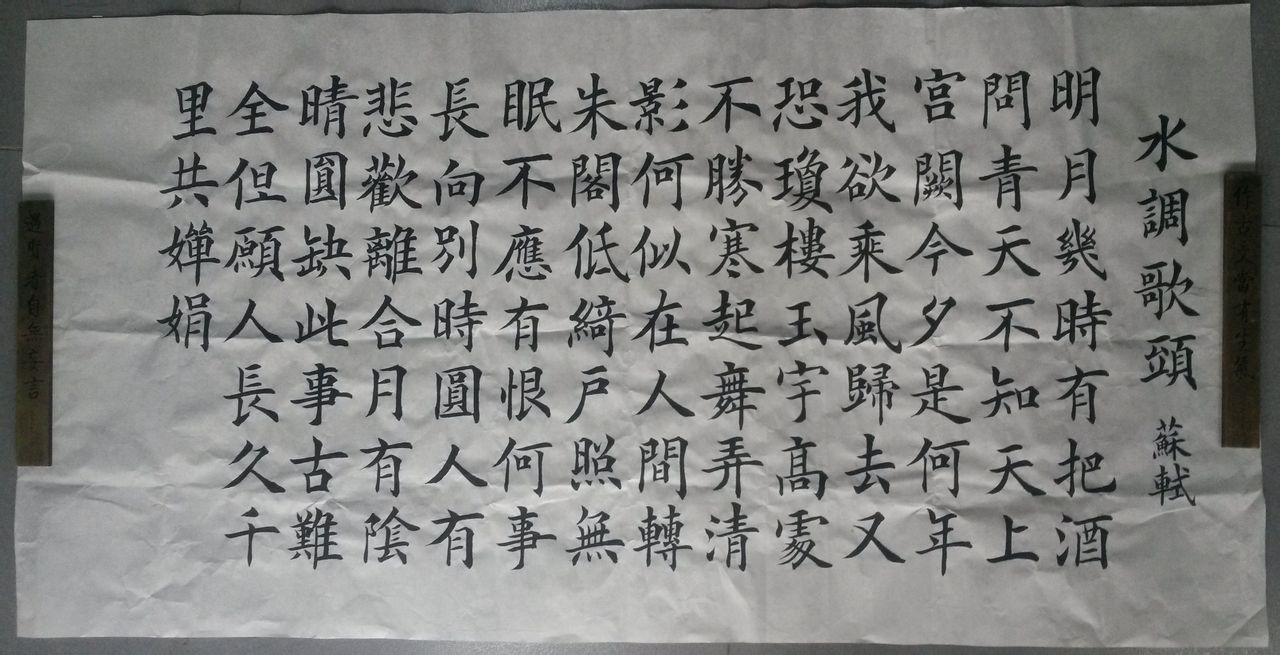 作古文當有生氣
水調歌頭 蘇軾
明月幾時有把酒
問青天不知天上
宮闕今夕是何年
我欲乘風歸去又
恐瓊樓玉宇高處
不勝寒起舞弄清
影何似在人間轉
朱閣低綺戶照無
眠不應有恨何事
長向別時圓人有
悲歡離合月有陰
晴圓缺此事古難
全但願人長久千
里共嬋娟
者自無妄言